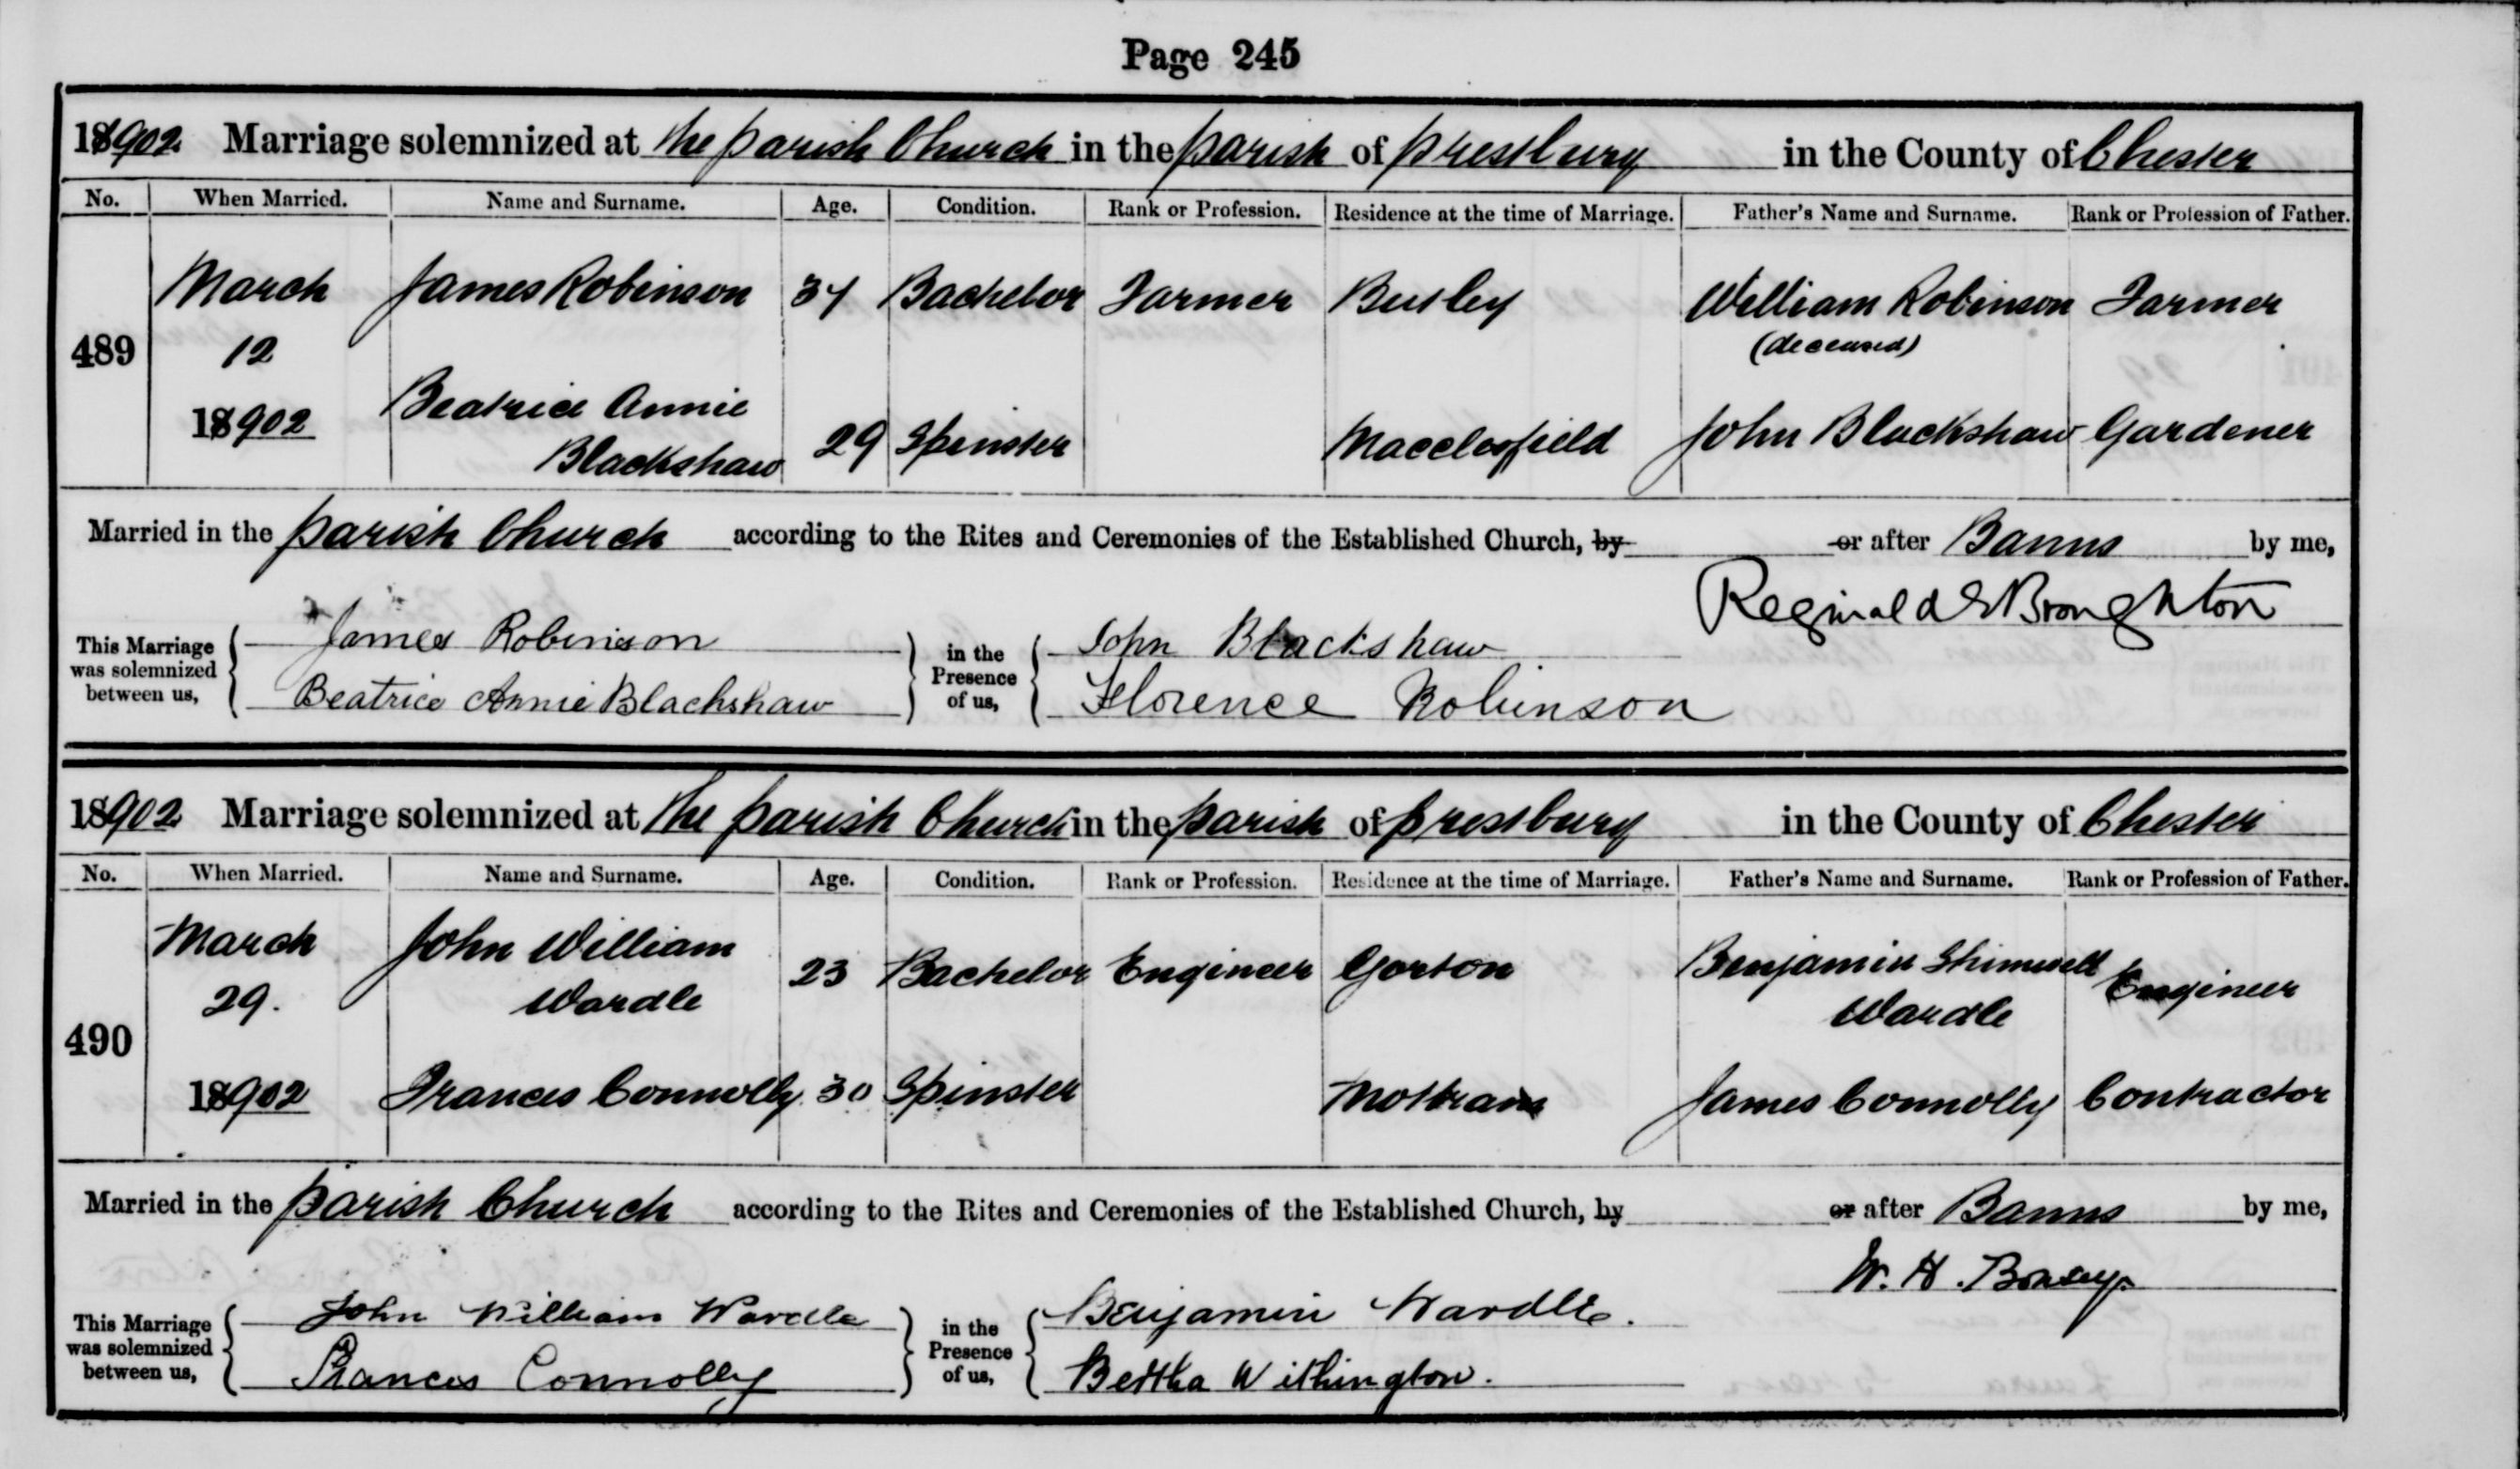 Page 245
18902 Marriage solemnized at the parish Church in the parish of prestbury in the County of Chester
No. When Married. Name and Surname. Age. Condition. Rank or Profession. Residence at the time of Marriage. Father's Name and Surname. Rank or Profession of Father.
March James Robinson 34 Bachelor Farmer Butley William Robinson Farmer
489 12 (deceased)
Beatrice Annie
18902 Blackshaw 29 Spinster Macclesfield John Blackshaw Gardener
Married in the parish Church according to the Rites and Ceremonies of the Established Church, by or after Banns by me,
Reginald S Broughton
This Marriage was solemnized between us, James Robinson in the Presence of us, John Blackshaw
Beatrice Annie Blackshaw Florence Robinson
18902 Marriage solemnized at the parish Church in the parish of prestbury in the County of Chester
No. When Married. Name and Surname. Age. Condition. Rank or Profession. Residence at the time of Marriage. Father's Name and Surname. Rank or Profession of Father.
March John William 23 Bachelor Engineer Gorton Benjamin Shimwell Engineer
29. Wardle Wardle
490
18902 Frances Connolly 30 Spinster Mottram James Connolly Contractor
Married in the parish Church according to the Rites and Ceremonies of the Established Church, by or after Banns by me,
W. H.
This Marriage was solemnized between us, John William Wardle in the Presence of us, Benjamin Wardle.
Frances Connolly Bertha Withington.